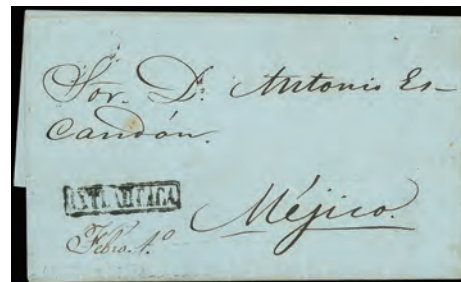 Sor. Dn. Antonio Es-
candón.
Méjico.
Febro. 1.º